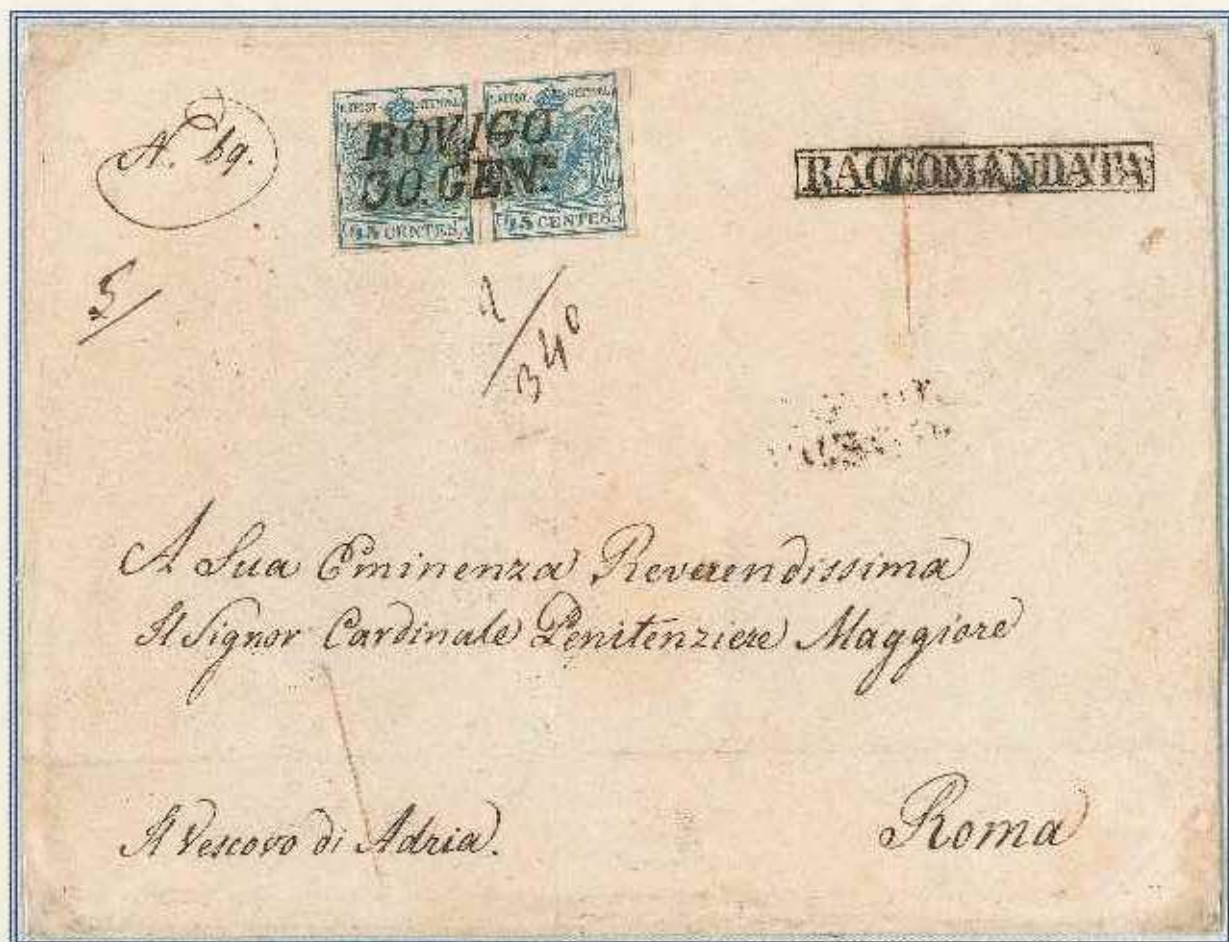 N. 69.
ROVIGO
30. GEN.
45 CENTES.
45 CENTES.
RACCOMANDATA
5
340
A Sua Eminenza Reverendissima
Il Signor Cardinale Penitenziere Maggiore
Il Vescovo di Adria.
Roma